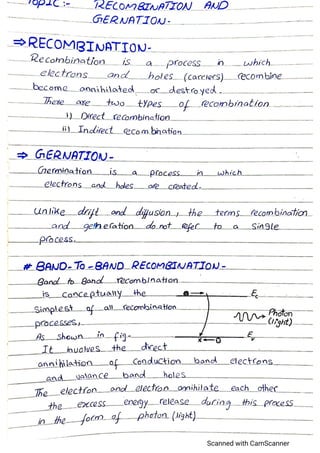 TOPIC :- RECOMBINATION AND
GERNATION-
⇒RECOMBINATION-
Recombination is a process in which
electrons and holes (carriers) recombine
become annihilated or destroyed.
There are two types of recombination
i) Direct recombination
ii) Indirect recombination
⇒ GERNATION-
Germination is a process in which
electrons and holes are created.
Unlike drift and diffusion, the terms recombination
and generation do not refer to a single
process.
# BAND-To-BAND RECOMBINATION-
Band to Band recombination
is conceptually the
Simplest of all recombination
processes,
As shown in fig-
It involves the direct
annihilation of conduction band electrons
and valance band holes
The electron and electron annihilate each other
the excess energy release during this process
in the form of photon (light)
Ec
Photon
(light)
Ev
Scanned with CamScanner